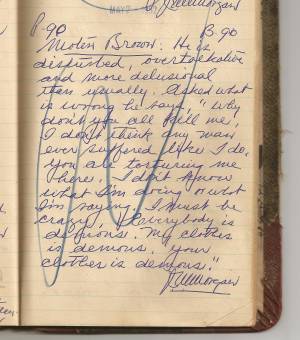 MAY 2
J. M. Morgan
P. 90 B. 90
Motin Brown. He is
disturbed, overtalkative
and more delusional
than usually. Asked what
is wrong he says, "Why
don't you all kill me,
I don't think any man
ever suffered like I do,
you are torturing me
here. I don't know
what I'm doing or what
I'm saying. I must be
crazy. Everybody is
demons. My clothes
is demons. Your
clothes is demons."